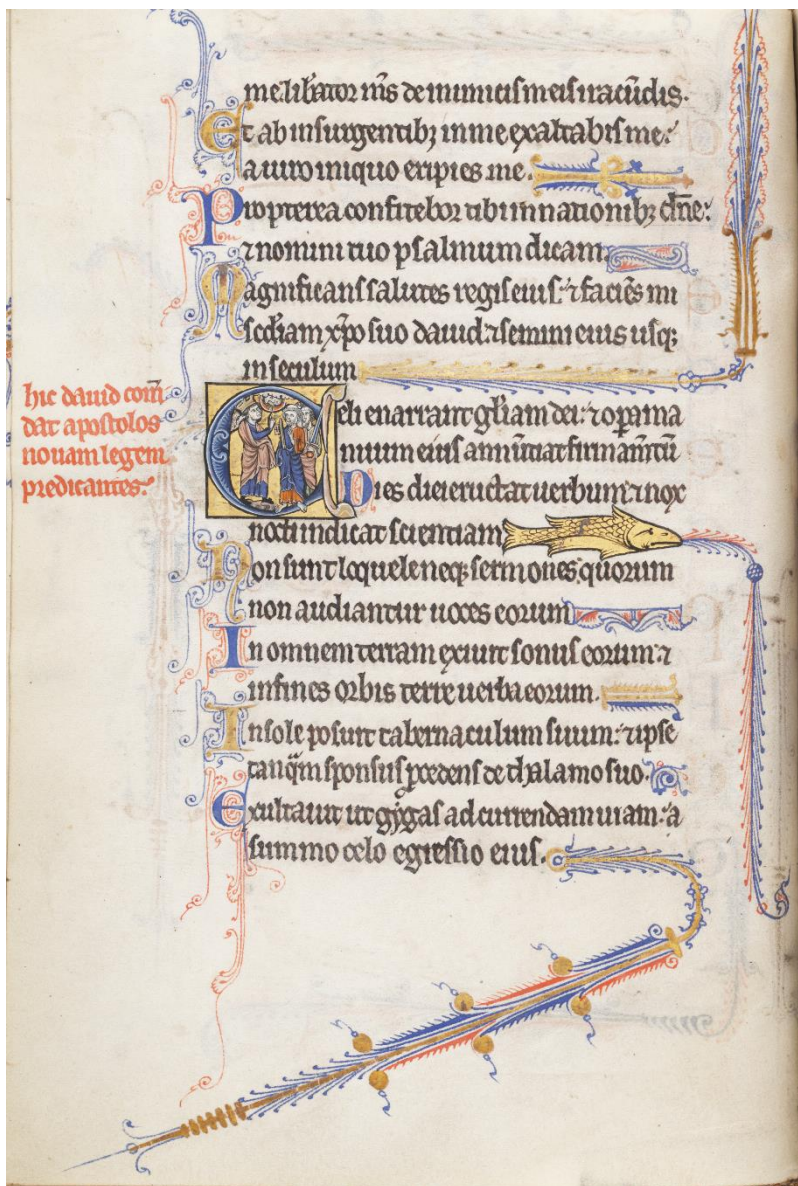 me. lib̄ator m̄s de inimicis meis iracūdis.
Et ab insurgentibȝ in me exaltabis me:
a uiro iniquo eripies me.
Propterea confitebor tibi in nationibȝ dn̄e:
⁊ nomini tuo psalmum dicam.
Magnificans salutes regis eius: ⁊ faciēs mi
sc̄diam xp̄o suo dauid: ⁊ semini eius usqȝ
in seculum
hic dauid com̄
dat apostolos
nouam legem
predicantes:
Celi enarrant gl̄iam dei: ⁊ oꝑa ma
nuum eius annūtiat firmam̄tū
Dies diei eructat uerbum: ⁊ nox
nocti indicat scientiam
Non sunt loquele neqȝ sermones: quorum
non audiantur uoces eorum
In omnem terram exiuit sonus eorum: ⁊
in fines orbis terre uerba eorum.
In sole posuit tabernaculum suum: ⁊ ipse
tanq̄m sponsus ꝓcedens de thalamo suo.
Exultauit ut gygas ad currendam uiam: a
summo celo egressio eius.